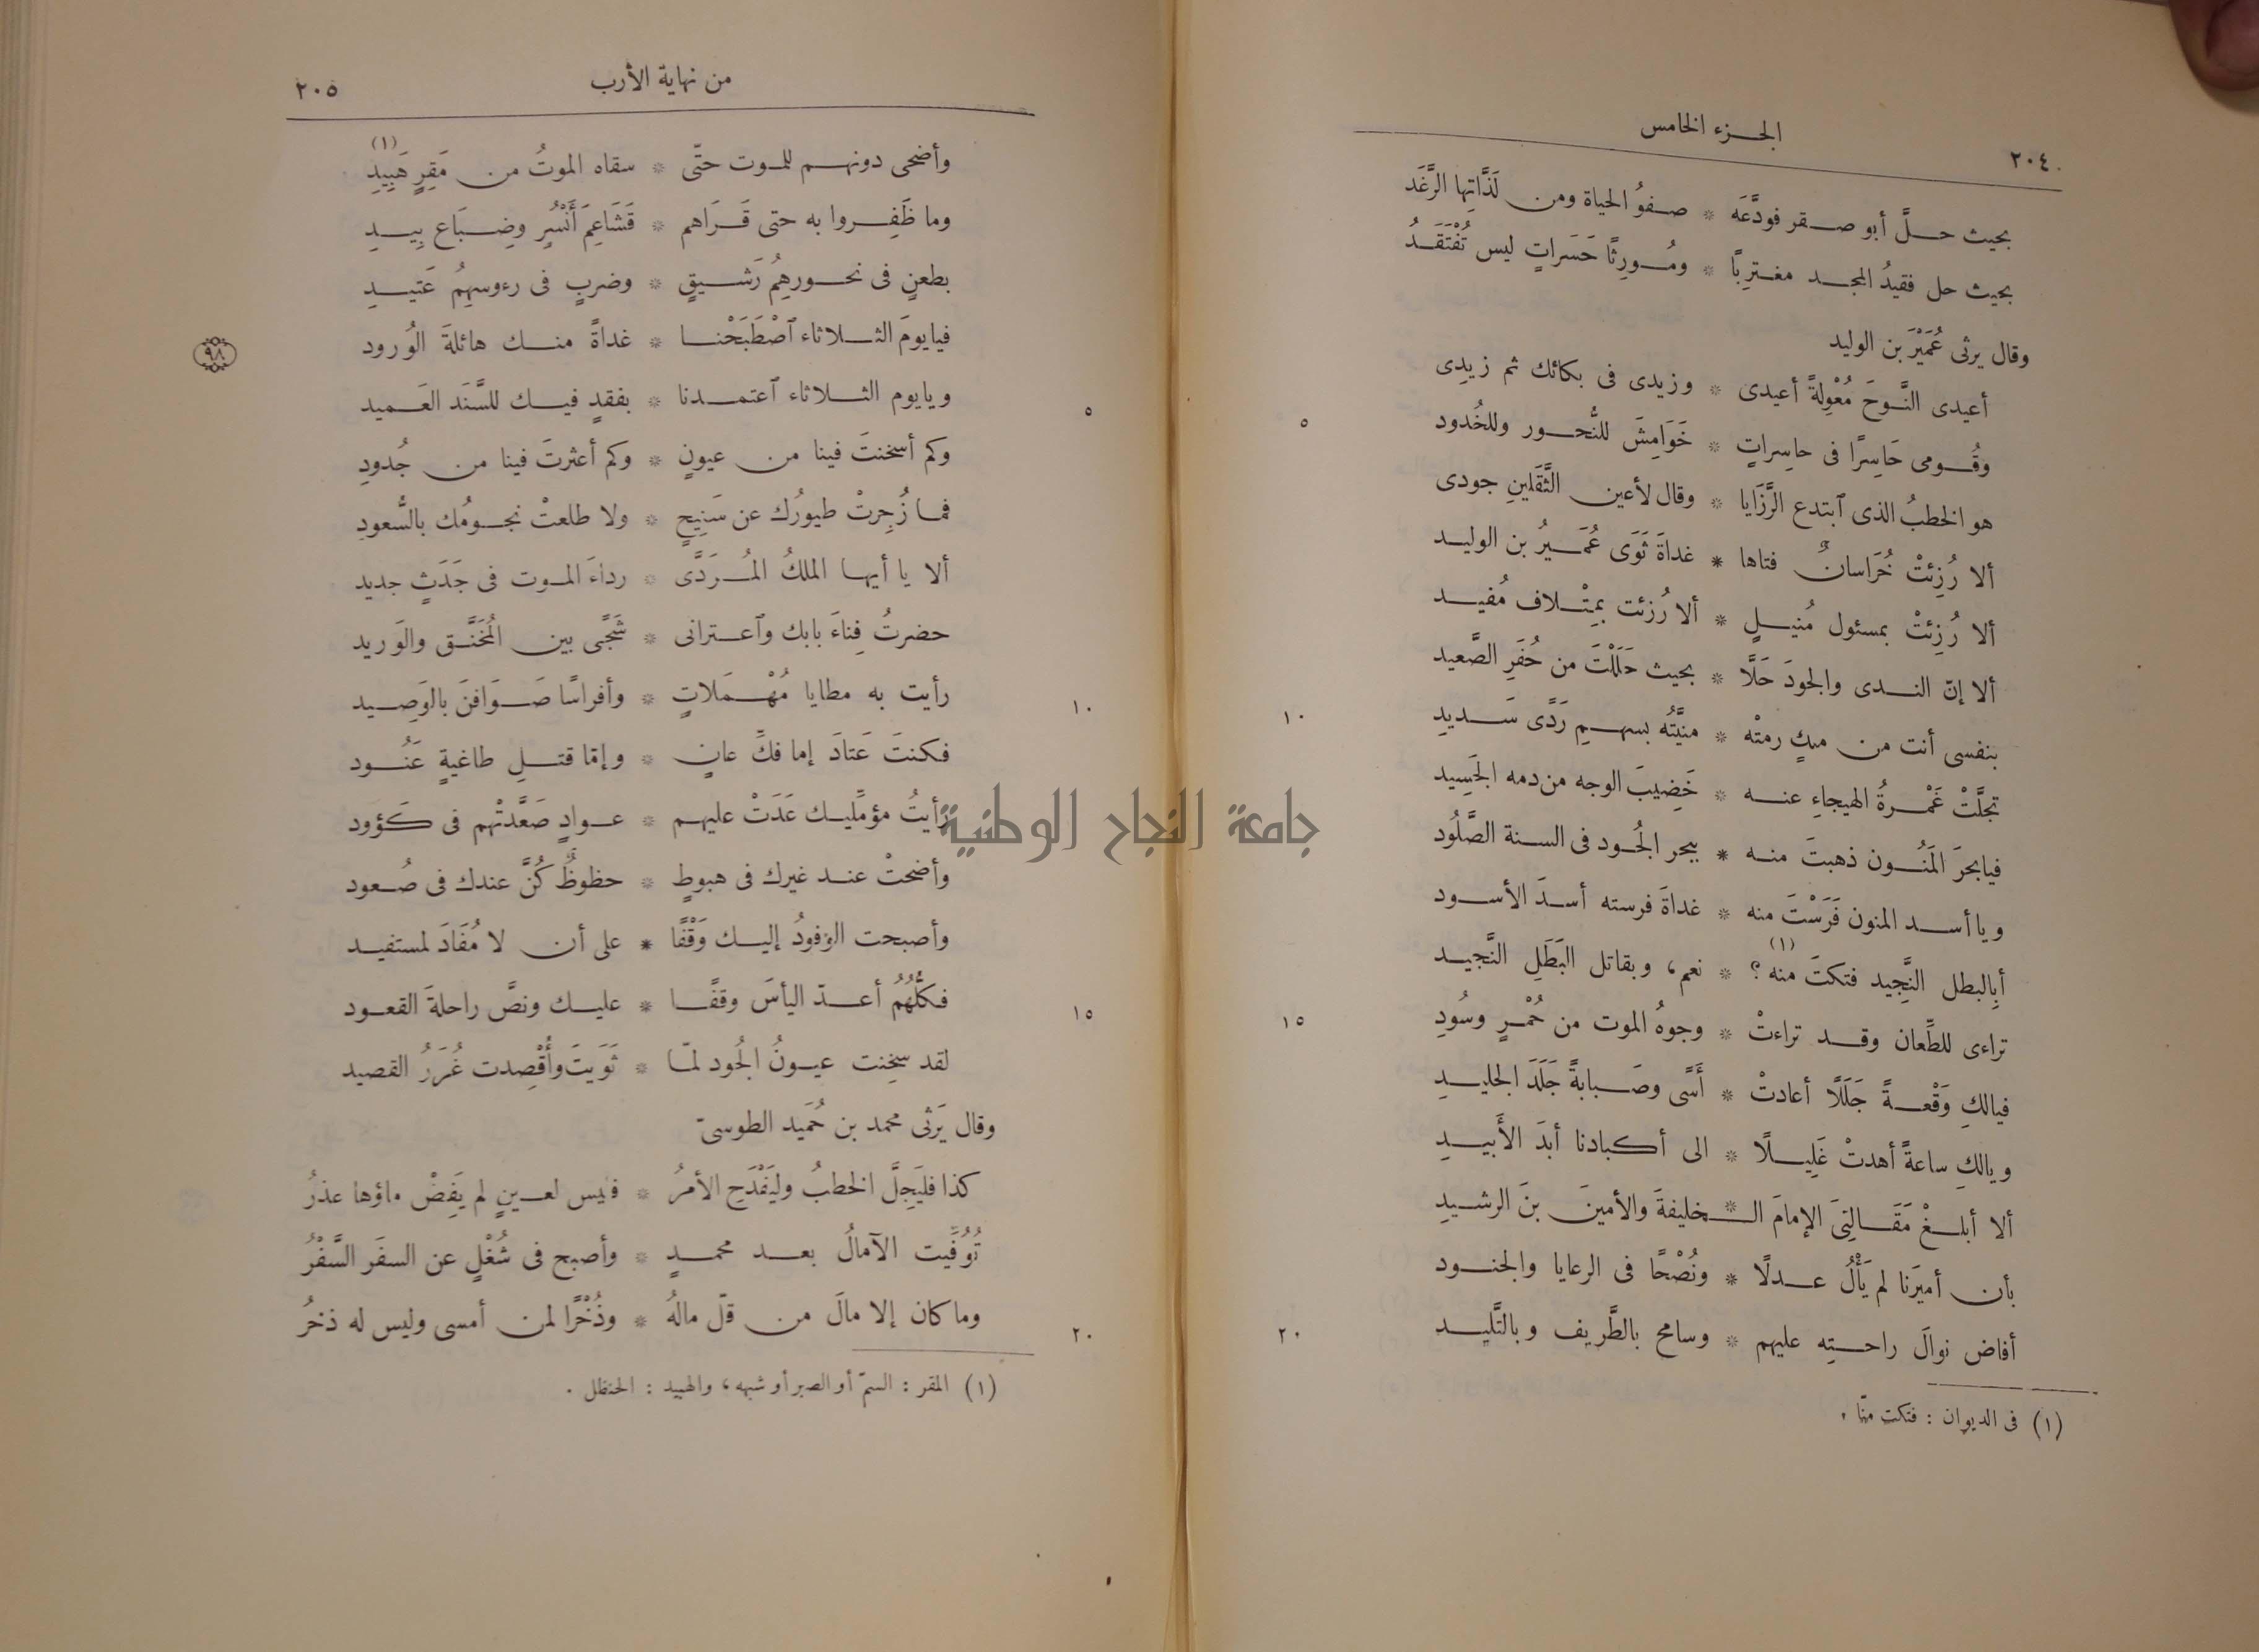 ٢٠٤
الجزء الخامس
بحيث حلَّ أبو صقر فودَّعَه * صفوُ الحياة ومن لَذَّاتِها الرَّغَد
بحيث حل فقيدُ المجد مغترِبًا * ومُورِثًا حَسَراتٍ ليس تُفْتَقَدُ
وقال يرثى عُمَيْرَ بن الوليد
أعيدى النَّوحَ مُعْوِلةً أعيدى * وزيدى فى بكائك ثم زيدِى
وقُومى حَاسِرًا فى حاسِراتٍ * خَوَامِشَ للنُّحور وللخُدود
هو الخطبُ الذى ٱبتدع الرَّزَايا * وقال لأعين الثَّقَلينِ جودى
ألا رُزِئتْ خُرَاسانٌ فتاها * غداةَ ثَوَى عُمَيرُ بن الوليد
ألا رُزِئتْ بمسئول مُنيلٍ * ألا رُزئت بِمتْلاف مُفيد
ألا إنّ الندى والجودَ حَلَّا * بحيث حَلَلْتَ من حُفَرِ الصَّعيد
بنفسى أنت من ميٍت رمتْه * منيَّتُه بسهمِ رَدًى سَديدِ
تجلَّتْ غَمْرةُ الهيجاءِ عنه * خَضِيبَ الوجه من دمه الجَسِيد
فيابحرَ المَنُون ذهبتَ منه * ببحر الجُود فى السنة الصَّلُود
ويا أسد المنون فَرَسْتَ منه * غداةَ فرسته أسدَ الأسود
أبِالبطل النَّجِيد فتكتَ منه (١) ؟ * نعم، وبقاتل البَطَلِ النَّجيد
تراءى للطِّعان وقد تراءتْ * وجوهُ الموت من حُمْرٍ وسُودِ
فيالكِ وَقْعةً جَلَلًا أعادتْ * أَسًى وصَبابةً جَلَدَ الجليدِ
ويالكِ ساعةً أهدتْ غَلِيلًا * الى أكبادنا أبدَ الأَبيدِ
ألا أبلغْ مَقَالتِىَ الإمامَ الـ * ـخليفةَ والأمينَ بنَ الرشيدِ
بأن أميرَنا لم يَأْلُ عدلًا * ونُصْحًا فى الرعايا والجنود
أفاض نوالَ راحتِه عليهم * وسامح بالطَّريف وبالتَّليد
٥
١٠
١٥
٢٠
(١) فى الديوان : فتكت منّا .
من نهاية الأرب
٢٠٥
وأضحى دونهم للموت حتّى * سقاه الموتُ من مَقِرٍ هَبِيِدِ (١)
وما ظَفِروا به حتى قَرَاهم * قَشَاعِمَ أَنْسُرٍ وضِبَاع بِيدِ
بطعنٍ فى نحورهِمُ رَشيقٍ * وضربٍ فى رءوسِهِمُ عَتيدِ
فيايومَ الثلاثاء ٱصْطَبَحْنا * غداةً منك هائلةَ الوُرود
ويايوم الثلاثاء ٱعتمدنا * بفقدٍ فيك للسَّنَد العَميد
وكم أسخنتَ فينا من عيونٍ * وكم أعثرتَ فينا من جُدودِ
فما زُجِرتْ طيورُك عن سَنِيحٍ * ولا طلعتْ نجومُك بالسُّعودِ
ألا يا أيها الملكُ المُرَدَّى * رداءَ الموت فى جَدَثٍ جديد
حضرتُ فِناءَ بابك وٱعترانى * شَجًى بين المُخَنَّق والوَريد
رأيت به مطايا مُهْمَلاتٍ * وأفراسًا صَوَافنَ بالوَصِيد
فكنتَ عَتادَ إما فكِّ عانٍ * وإمّا قتلِ طاغيةٍ عَنُود
رأيتُ مؤمِّليك عَدَتْ عليهم * عوادٍ صَعَّدتْهم فى كَؤود
وأضحتْ عند غيرك فى هبوطٍ * حظوظٌ كُنَّ عندك فى صُعود
وأصبحت الوُفودُ إليك وَقْفًا * على أن لا مُفَادَ لمستفيد
فكلُّهُمُ أعدّ اليأسَ وقفًا * عليك ونصَّ راحلةَ القعود
لقد سخِنت عيونُ الجُود لمّا * ثَوَيتَ وأُقْصِدت غُرَرُ القصيد
وقال يَرثى محمد بن حُمَيد الطوسىّ
كذا فليَجِلَّ الخطبُ وليَفْدَحِ الأمرُ * فليس لعينٍ لم يَفِضْ ماؤها عذرُ
تُوُفِّيت الآمالُ بعد محمدٍ * وأصبح فى شُغْلٍ عن السفَر السَّفْرُ
وما كان إلا مالَ من قلّ مالُه * وذُخْرًا لمن أمسى وليس له ذخرُ
٩٨
٥
١٠
١٥
٢٠
(١) المقر : السمّ أو الصبر أو شبهه، والهبيد : الحنظل .
جامعة النجاح الوطنية